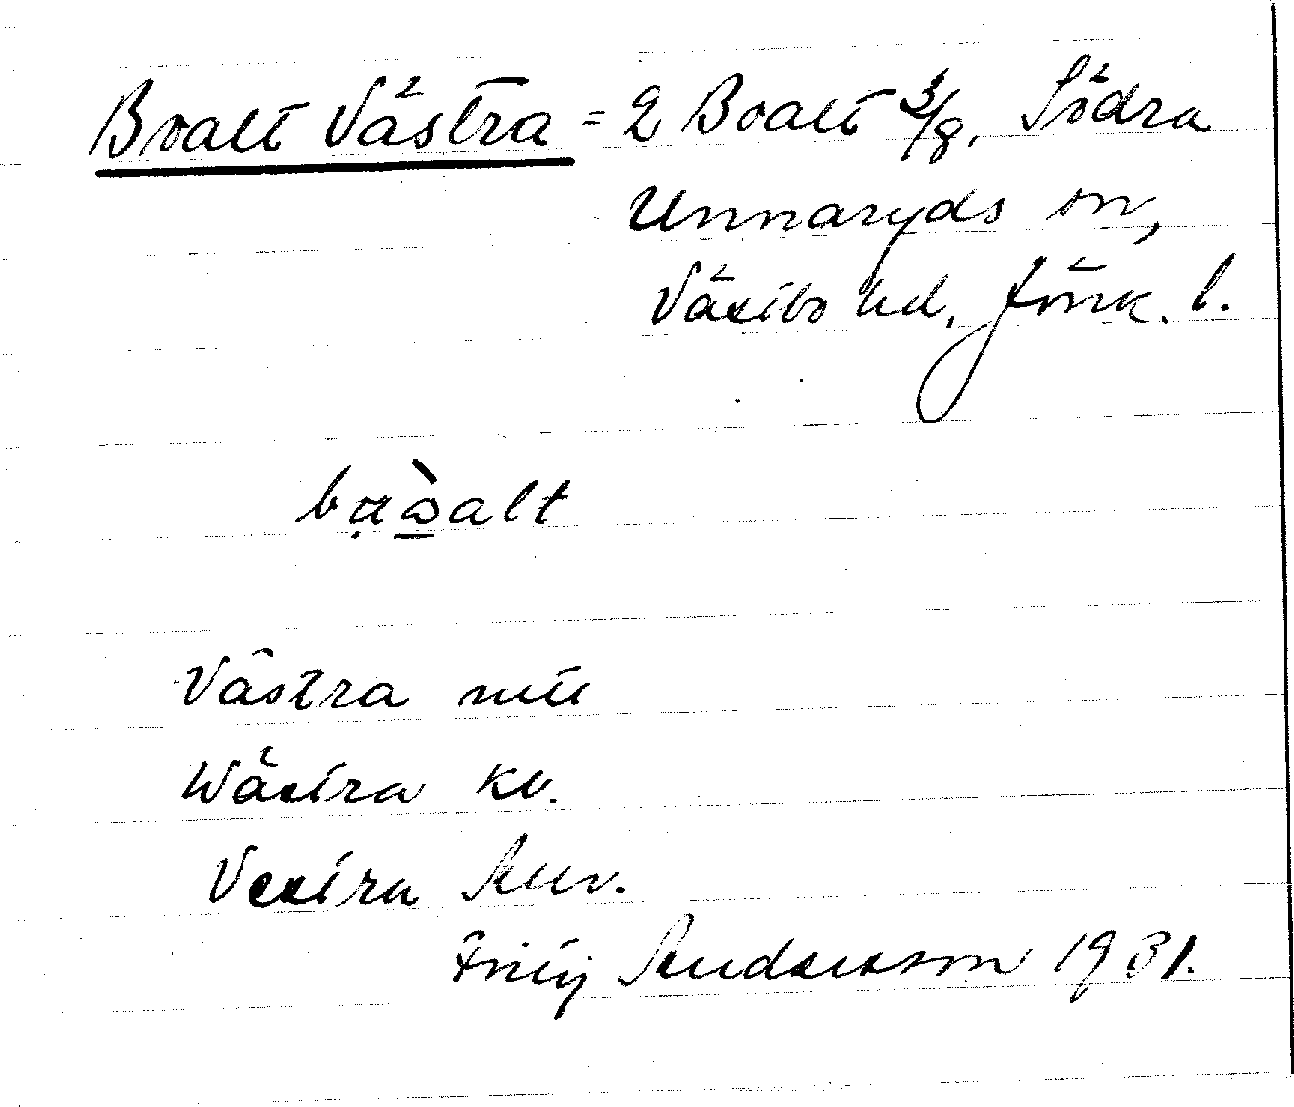 Boalt Västra = 2 Boalt 3/8, Södra
Unnaryds sn,
Västbo hd, Jönk. l.
Västra
Wästra kv.
Vestra
Andersson 1931.